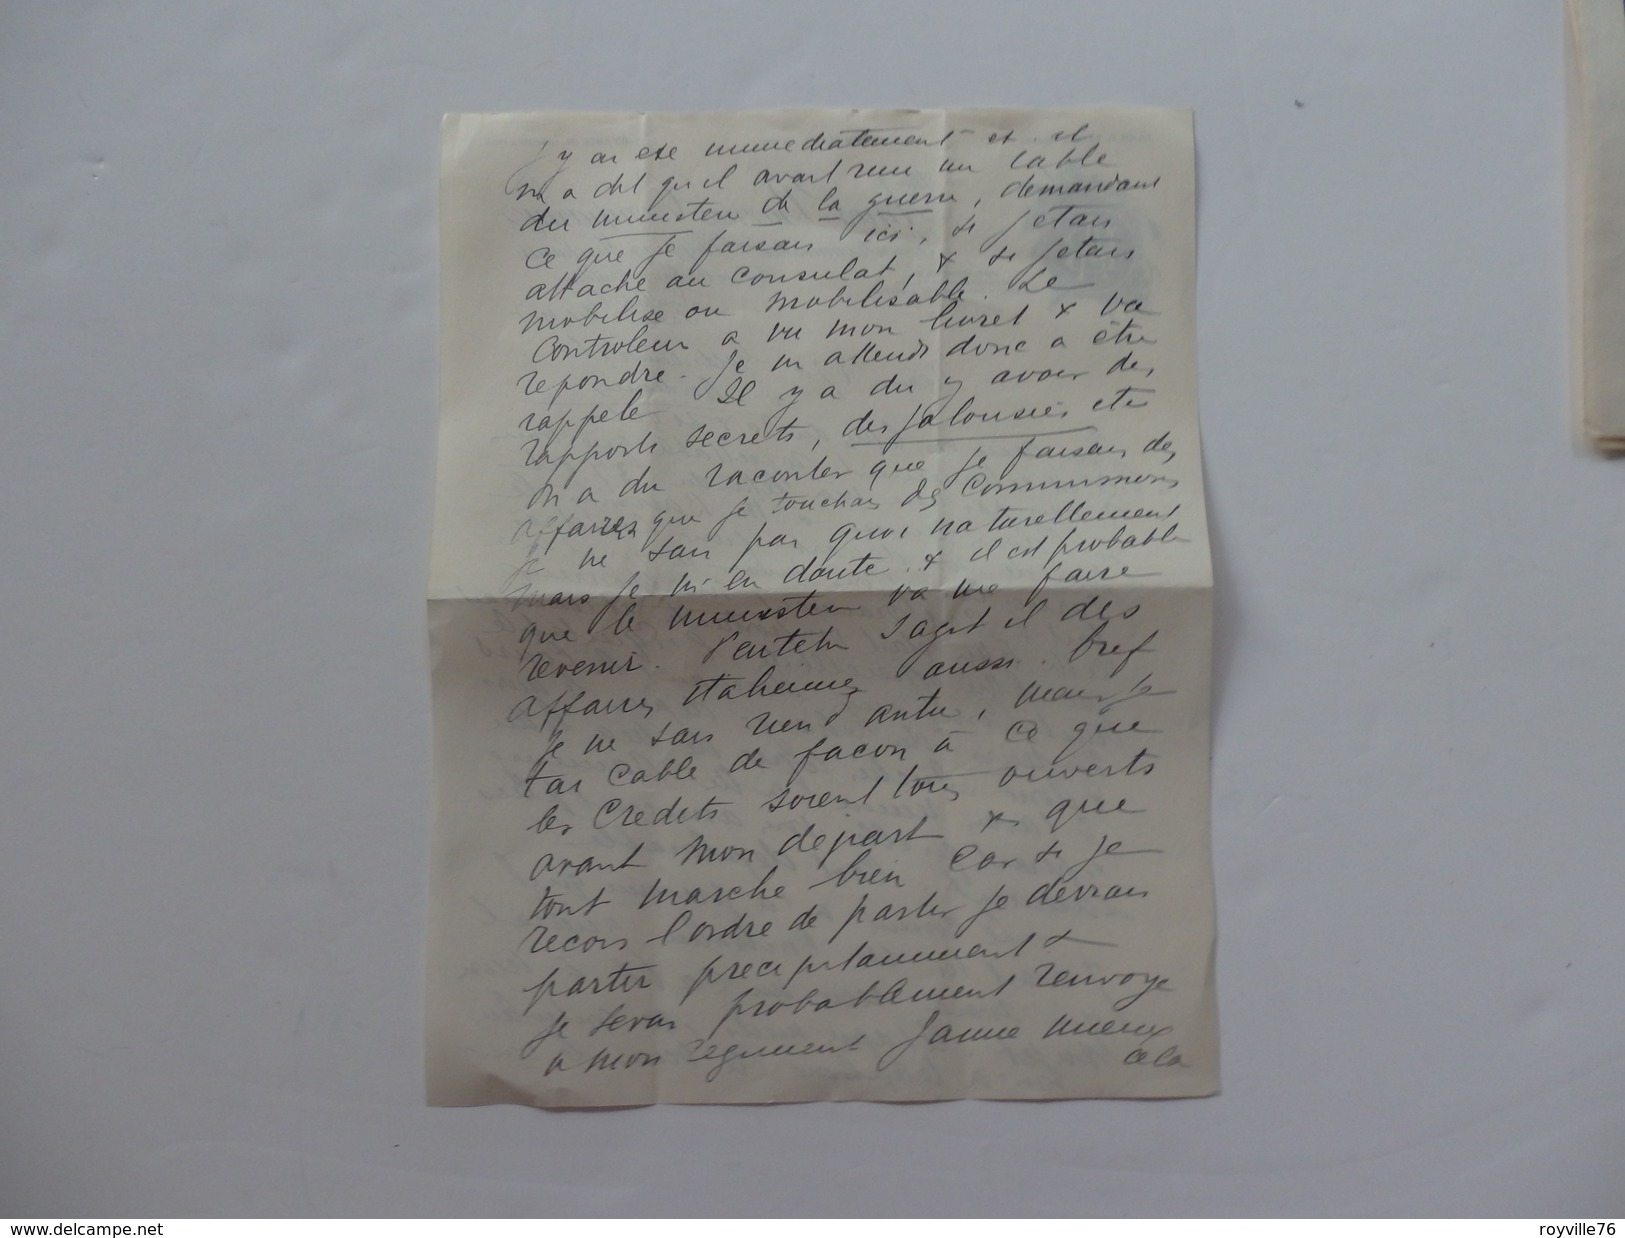 J y ai ete immediatement et il
m a dit qu il avait recu un cable
du ministere de la guerre, demandant
ce que je faisais ici, si jetais
attache au consulat, & si jetais
mobilise ou mobilisable. Le
Controleur a vu mon livret & va
repondre. Je m attends donc a être
rappele Il y a du y avoir des
rapports secrets, des jalousies etc
On a du raconter que je faisais des
affaires que je touchais des Commissions
Je ne sais pas quoi naturellement
mais je m en doute. & il est probable
que le ministere va me faire
revenir. Peutetre sagit il des
affaires italiennes aussi. Bref
Je ne sais rien d autre, mais je
tai cable de façon à ce que
les Credits soient tous ouverts
avant mon depart & que
tout marche bien Car si je
recois l'ordre de partir je devrais
partir precipitamment &
je serai probablement renvoye
a mon regiment Jaime mieux
cela
delcampe.net
royville76